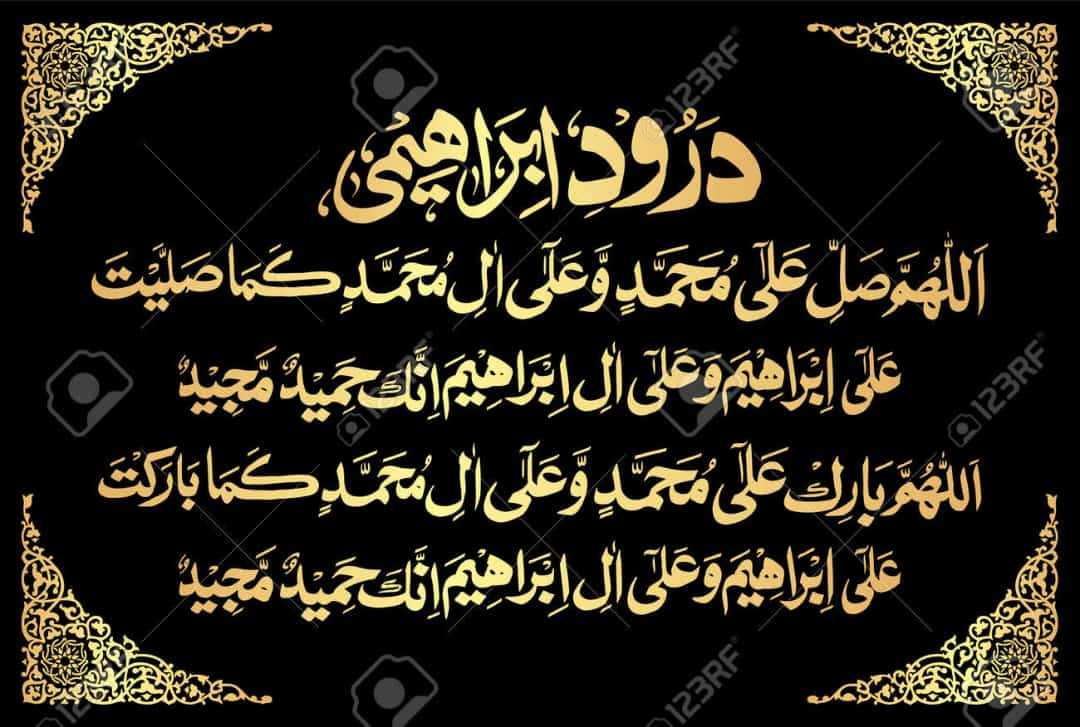 دَرُودِ اِبْرَاهِیْمِی
اَللّٰهُمَّ صَلِّ عَلٰٓی مُحَمَّدٍ وَّعَلٰٓی اٰلِ مُحَمَّدٍ کَمَا صَلَّیْتَ
عَلٰٓی اِبْرَاهِیْمَ وَعَلٰٓی اٰلِ اِبْرَاهِیْمَ اِنَّكَ حَمِیْدٌ مَّجِیْدٌ
اَللّٰهُمَّ بَارِكْ عَلٰٓی مُحَمَّدٍ وَّعَلٰٓی اٰلِ مُحَمَّدٍ کَمَا بَارَکْتَ
عَلٰٓی اِبْرَاهِیْمَ وَعَلٰٓی اٰلِ اِبْرَاهِیْمَ اِنَّكَ حَمِیْدٌ مَّجِیْدٌ
123RF